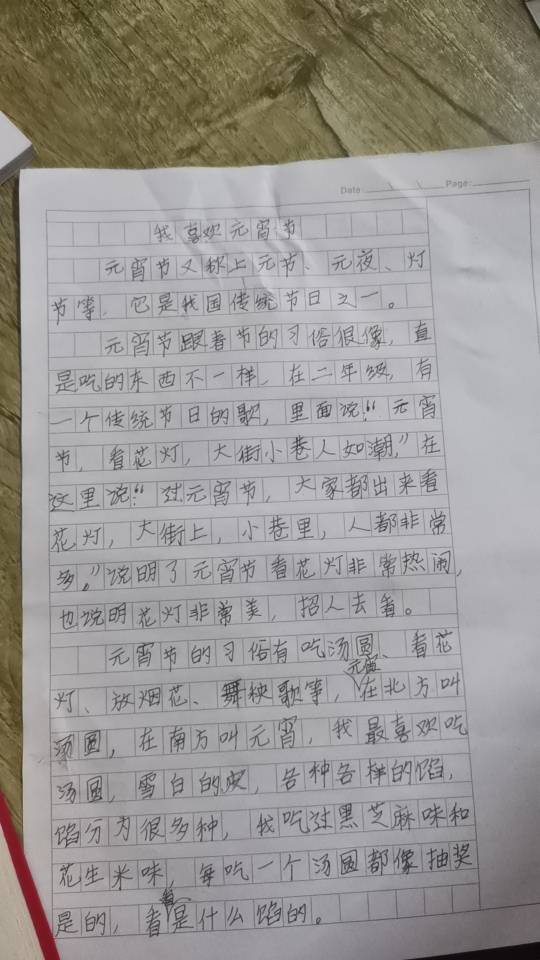 Date: Page:
我喜欢元宵节
元宵节又称上元节、元夜、灯
节等,它是我国传统节日之一。
元宵节跟春节的习俗很像,直
是吃的东西不一样,在二年级,有
一个传统节日的歌,里面说:“元宵
节,看花灯,大街小巷人如潮,”在
这里说:“过元宵节,大家都出来看
花灯,大街上,小巷里,人都非常
多。”说明了元宵节看花灯非常热闹,
也说明花灯非常美,招人去看。
元宵节的习俗有吃汤圆、看花
灯、放烟花、舞秧歌等,元宵在北方叫
汤圆,在南方叫元宵,我最喜欢吃
汤圆,雪白的皮,各种各样的馅,
馅分为很多种,我吃过黑芝麻味和
花生米味,每吃一个汤圆都像抽奖
是的,看看是什么馅的。